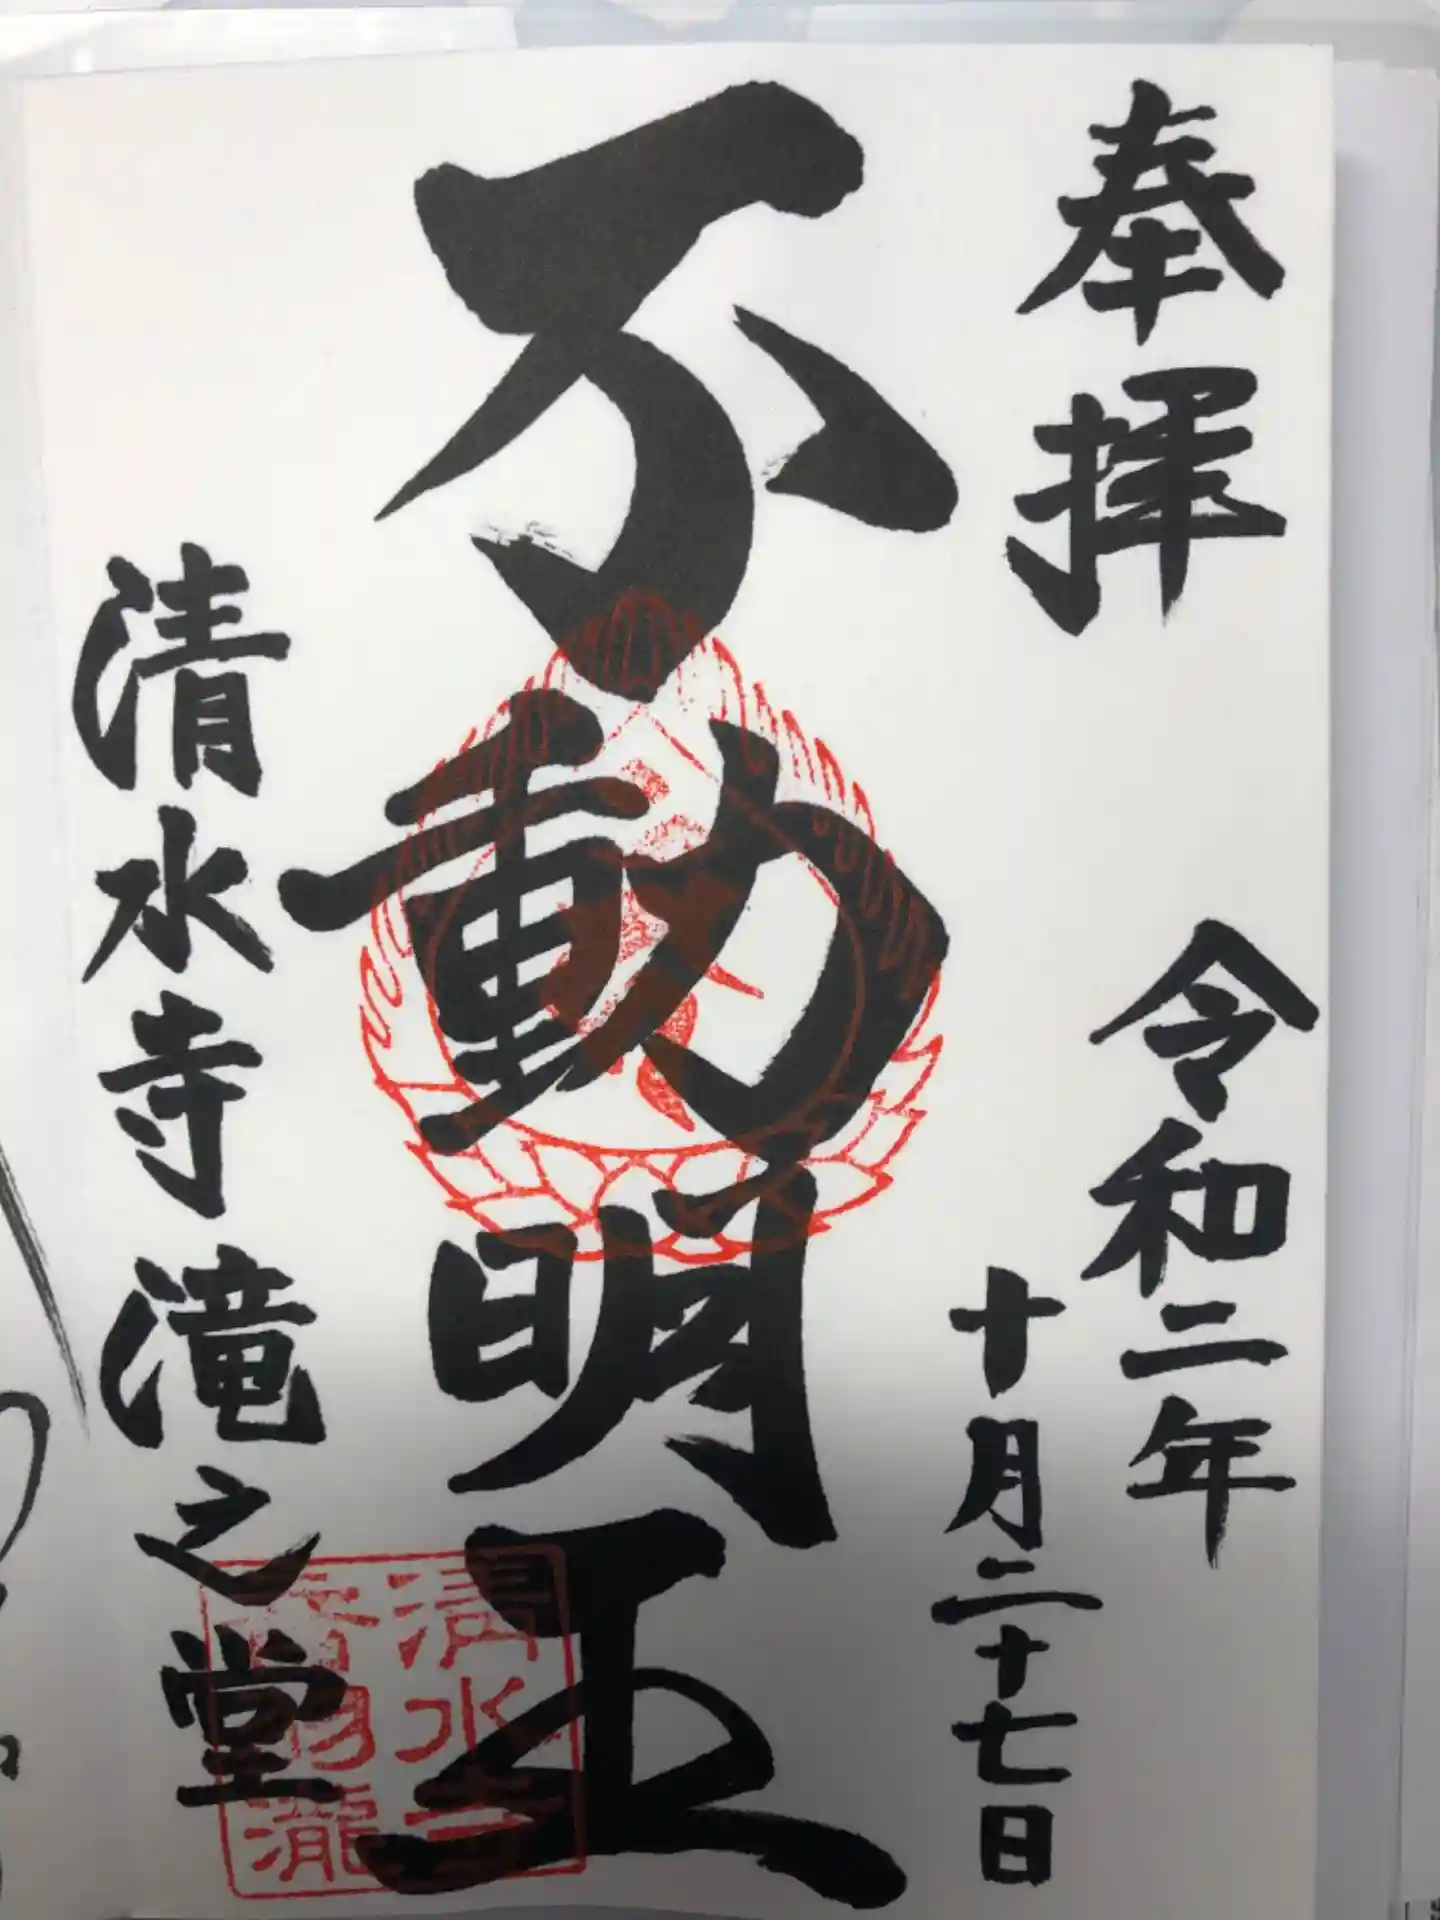 奉拝
令和二年
十月二十七日
不動明王
清水寺滝之堂
清水寺
音羽瀧